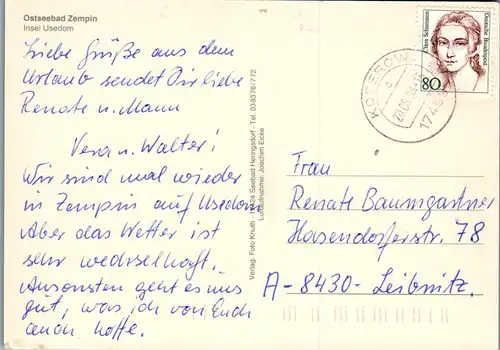 Ostseebad Zempin
Insel Usedom
Liebe Grüße aus dem
Urlaub sendet Dir liebe
Renate u. Mann
Vera u. Walter!
Wir sind mal wieder
in Zempin auf Usedom
Aber das Wetter ist
sehr wechselhaft.
Ansonsten geht es uns
gut, was ich von Euch
auch hoffe.
Verlag: Foto Knuth · Seebad Heringsdorf · Tel. 038378/772
Luftaufnahme: Joachim Eicke
Clara Schumann
Deutsche Bundespost
80
KOSEROW
174
Frau
Renate Baumgartner
Hasendorferstr. 78
A-8430- Leibnitz.